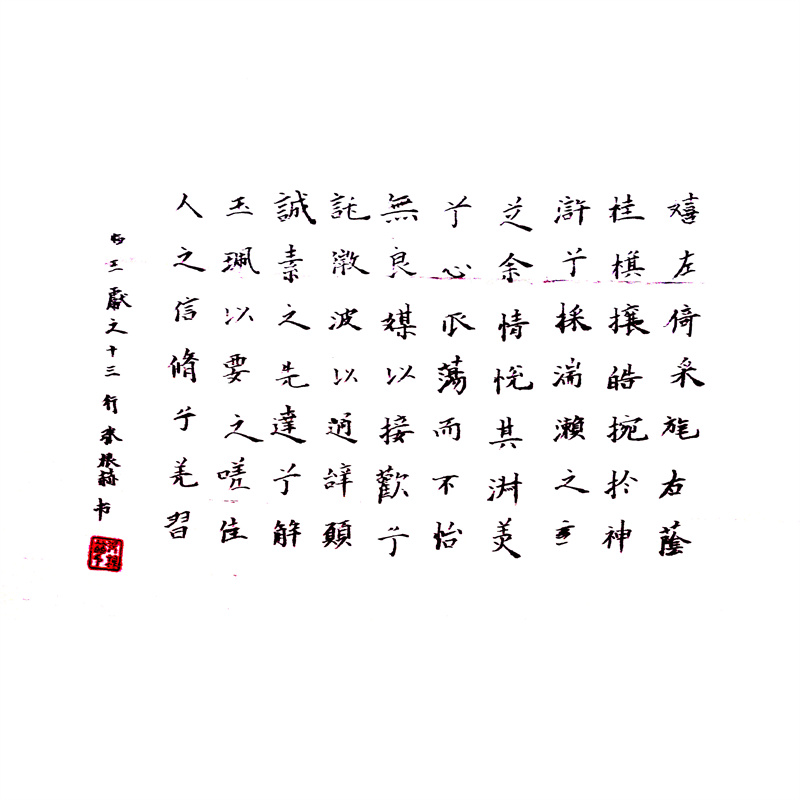 嬉左倚采旄右蔭
桂棋攘皓捥扵神
滸兮採湍瀨之玄
芝余情悅其淑美
兮心振蕩而不怡
無良媒以接歡兮
託微波以通辭願
誠素之先達兮解
玉珮以要之嗟佳
人之信脩兮羌習
王獻之十三行书